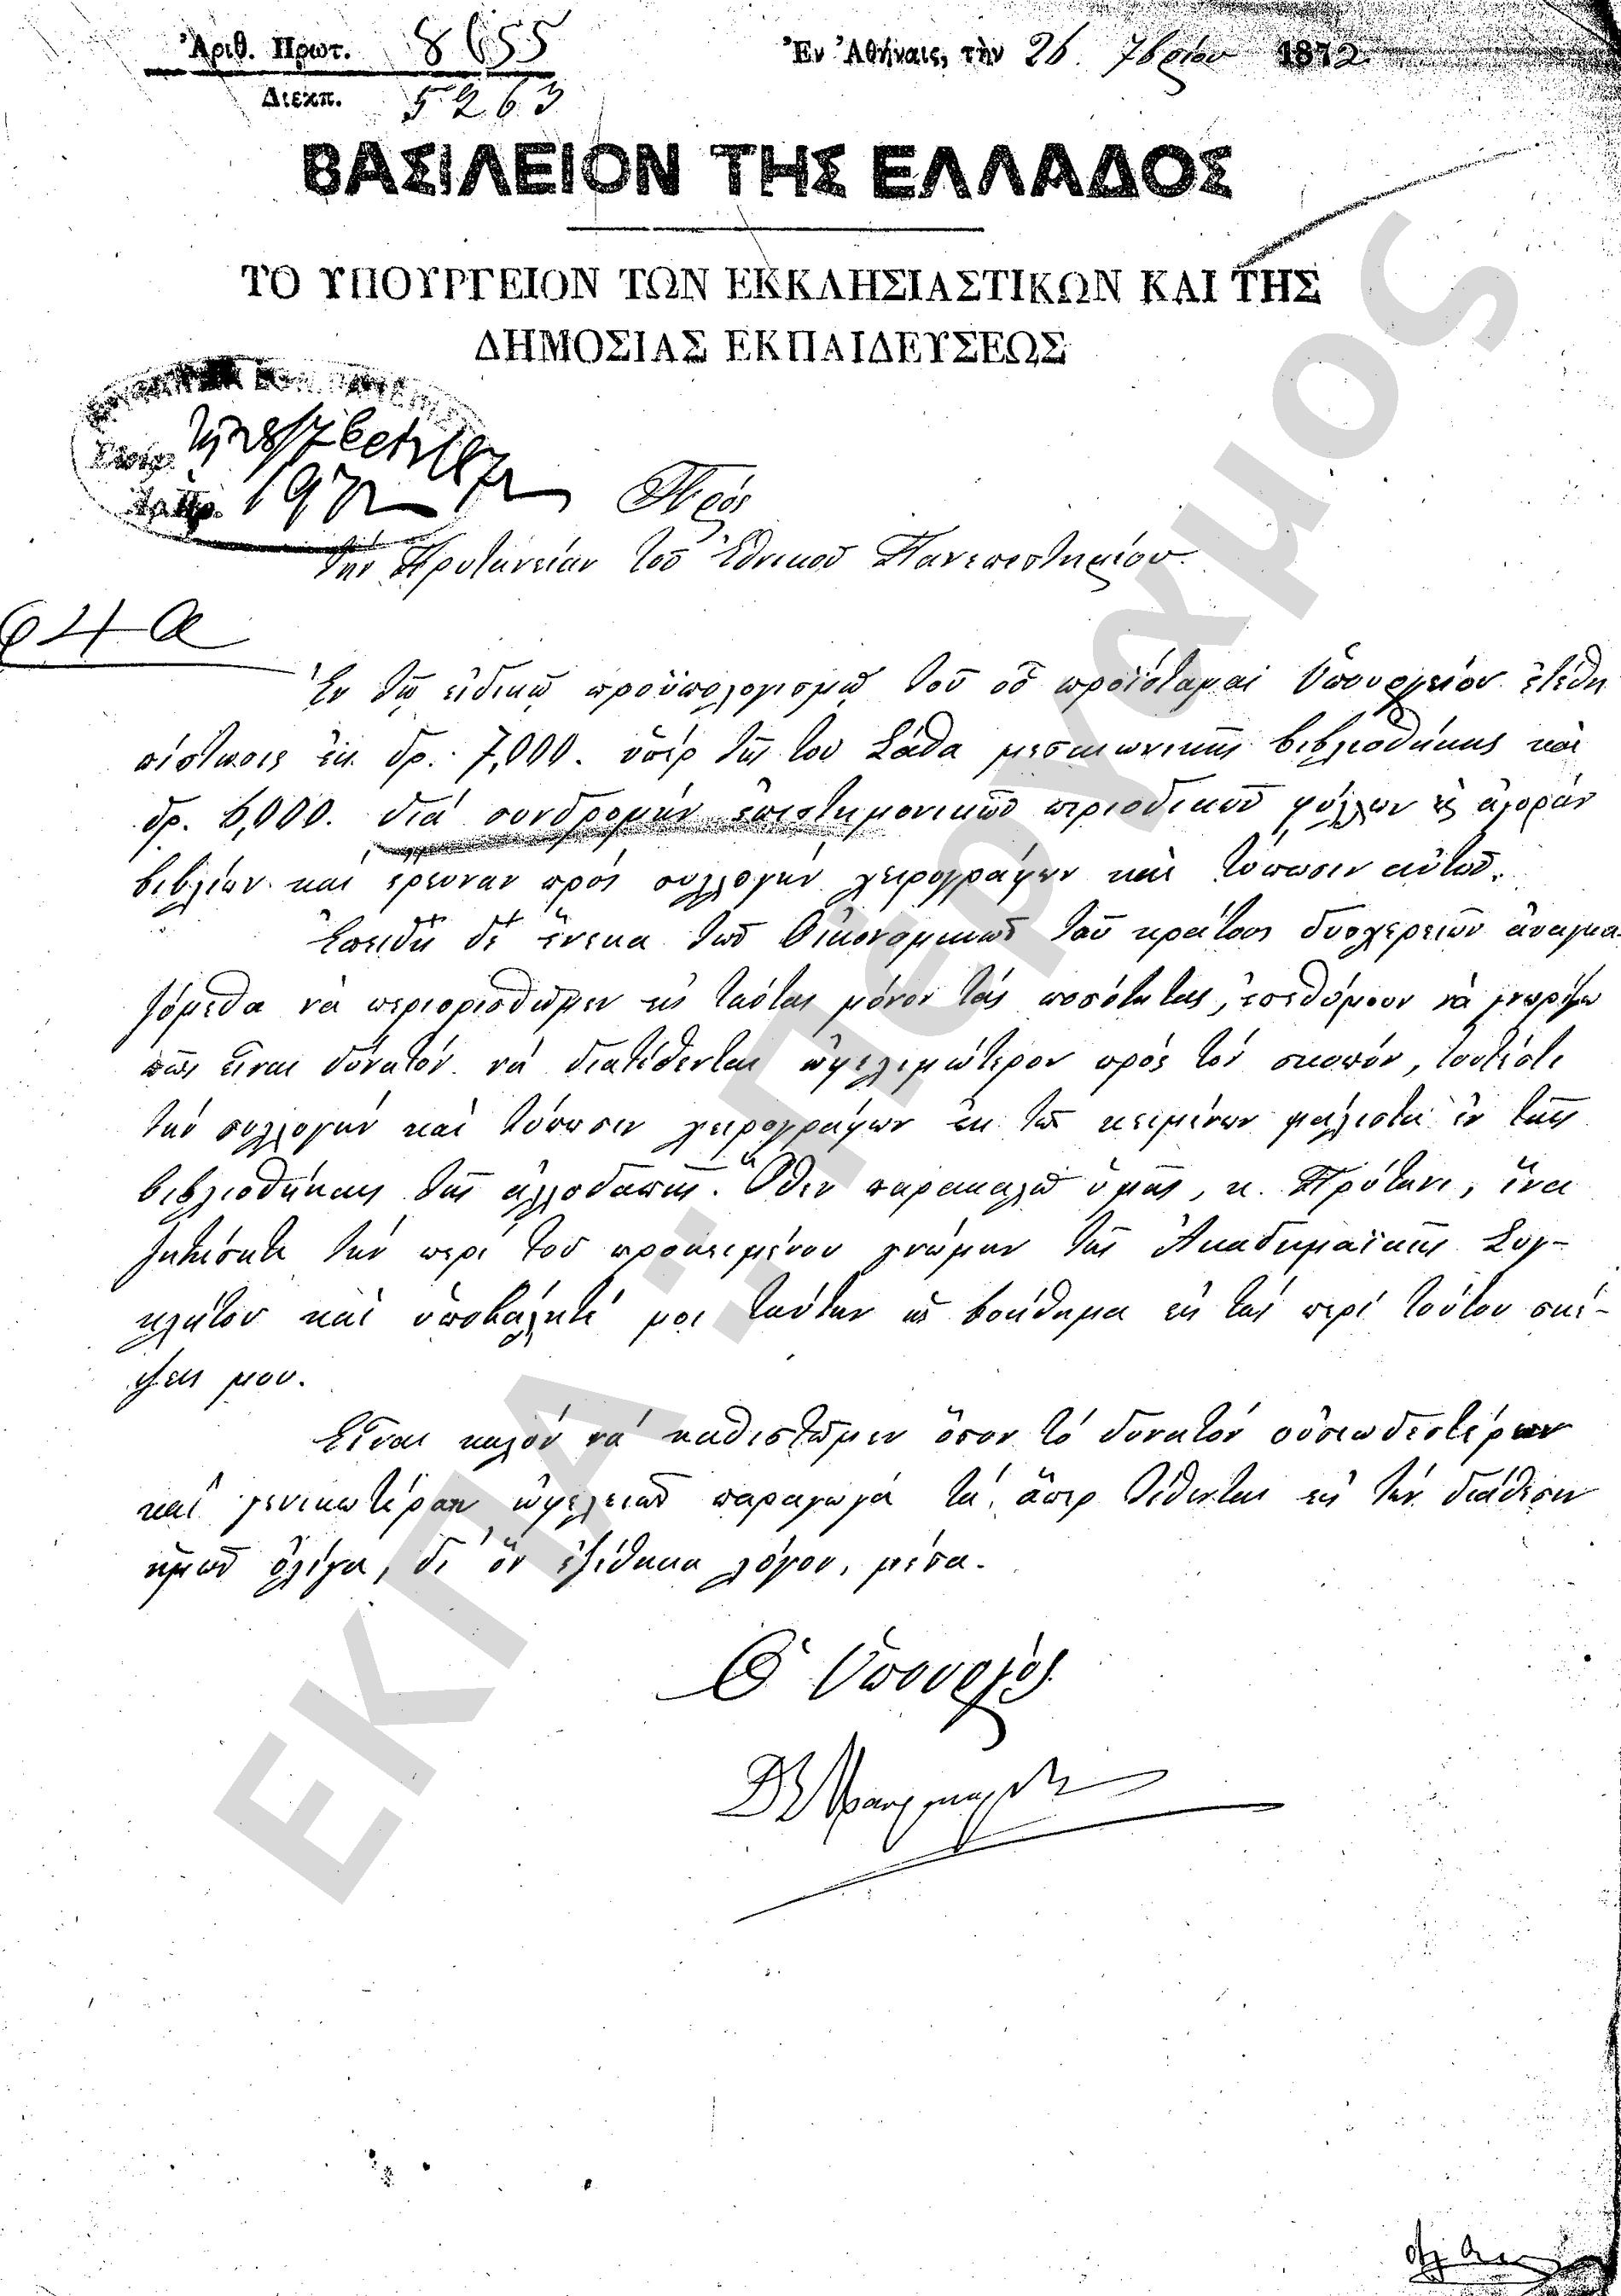 Ἀριθ. Πρωτ. 8655
Διεκπ. 5263
Ἐν Ἀθήναις, τὴν 26 7βρίου 1872
ΒΑΣΙΛΕΙΟΝ ΤΗΣ ΕΛΛΑΔΟΣ
ΤΟ ΥΠΟΥΡΓΕΙΟΝ ΤΩΝ ΕΚΚΛΗΣΙΑΣΤΙΚΩΝ ΚΑΙ ΤΗΣ
ΔΗΜΟΣΙΑΣ ΕΚΠΑΙΔΕΥΣΕΩΣ
Πρός
τὴν Πρυτανείαν τοῦ Ἐθνικοῦ Πανεπιστημίου.
64 α
Ἐν τῷ εἰδικῷ προϋπολογισμῷ τοῦ οὗ προΐσταμαι Ὑπουργείου ἐτέθη
πίστωσις ἐκ δρ. 7,000. ὑπὲρ τῆς τοῦ Σάθα μεσαιωνικῆς βιβλιοθήκης καὶ
δρ. 6,000. διά συνδρομήν ἐπιστημονικῶν περιοδικῶν φύλλων εἰς ἀγοράν
βιβλίων καί ἔρευναν πρός συλλογήν χειρογράφων καὶ τύπωσιν αὐτῶν.
Ἐπειδή δέ ἕνεκα τῶν Οἰκονομικῶν τοῦ κράτους δυσχερειῶν ἀναγκα
ζόμεθα νά περιορισθῶμεν εἰς ταύτας μόνον τάς ποσότητας, ἐπεθύμουν νά γνωρίζω
πῶς εἶναι δυνατόν νά διατίθενται ὠφελιμώτερον πρός τόν σκοπόν, τουτέστι
τήν συλλογήν καί τύπωσιν χειρογράφων ἐκ τῶν κειμένων μάλιστα ἐν ταῖς
βιβλιοθήκαις τῆς ἀλλοδαπῆς. Ὅθεν παρακαλῶ ὑμᾶς, κ. Πρύτανι, ἵνα
ζητήσητε τήν περί τοῦ προκειμένου γνώμην τῆς Ἀκαδημαϊκῆς Συγ-
κλήτου καὶ ὑποβάλητέ μοι ταύτην ὡς βοήθημα εἰς τάς περί τούτου σκέ-
ψεις μου.
Εἶναι καλόν νά καθιστῶμεν ὅσον τό δυνατόν οὐσιωδεστέρων
καί γενικωτέρων ὠφελειῶν παραγωγά τά, ἅπερ τίθενται εἰς τήν διάθεσιν
ἡμῶν ὀλίγα, δι' ὅν ἐξέθηκα λόγον, μέσα.
Ὁ Ὑπουργός
ΕΚΠΑ :: Πέργαμος